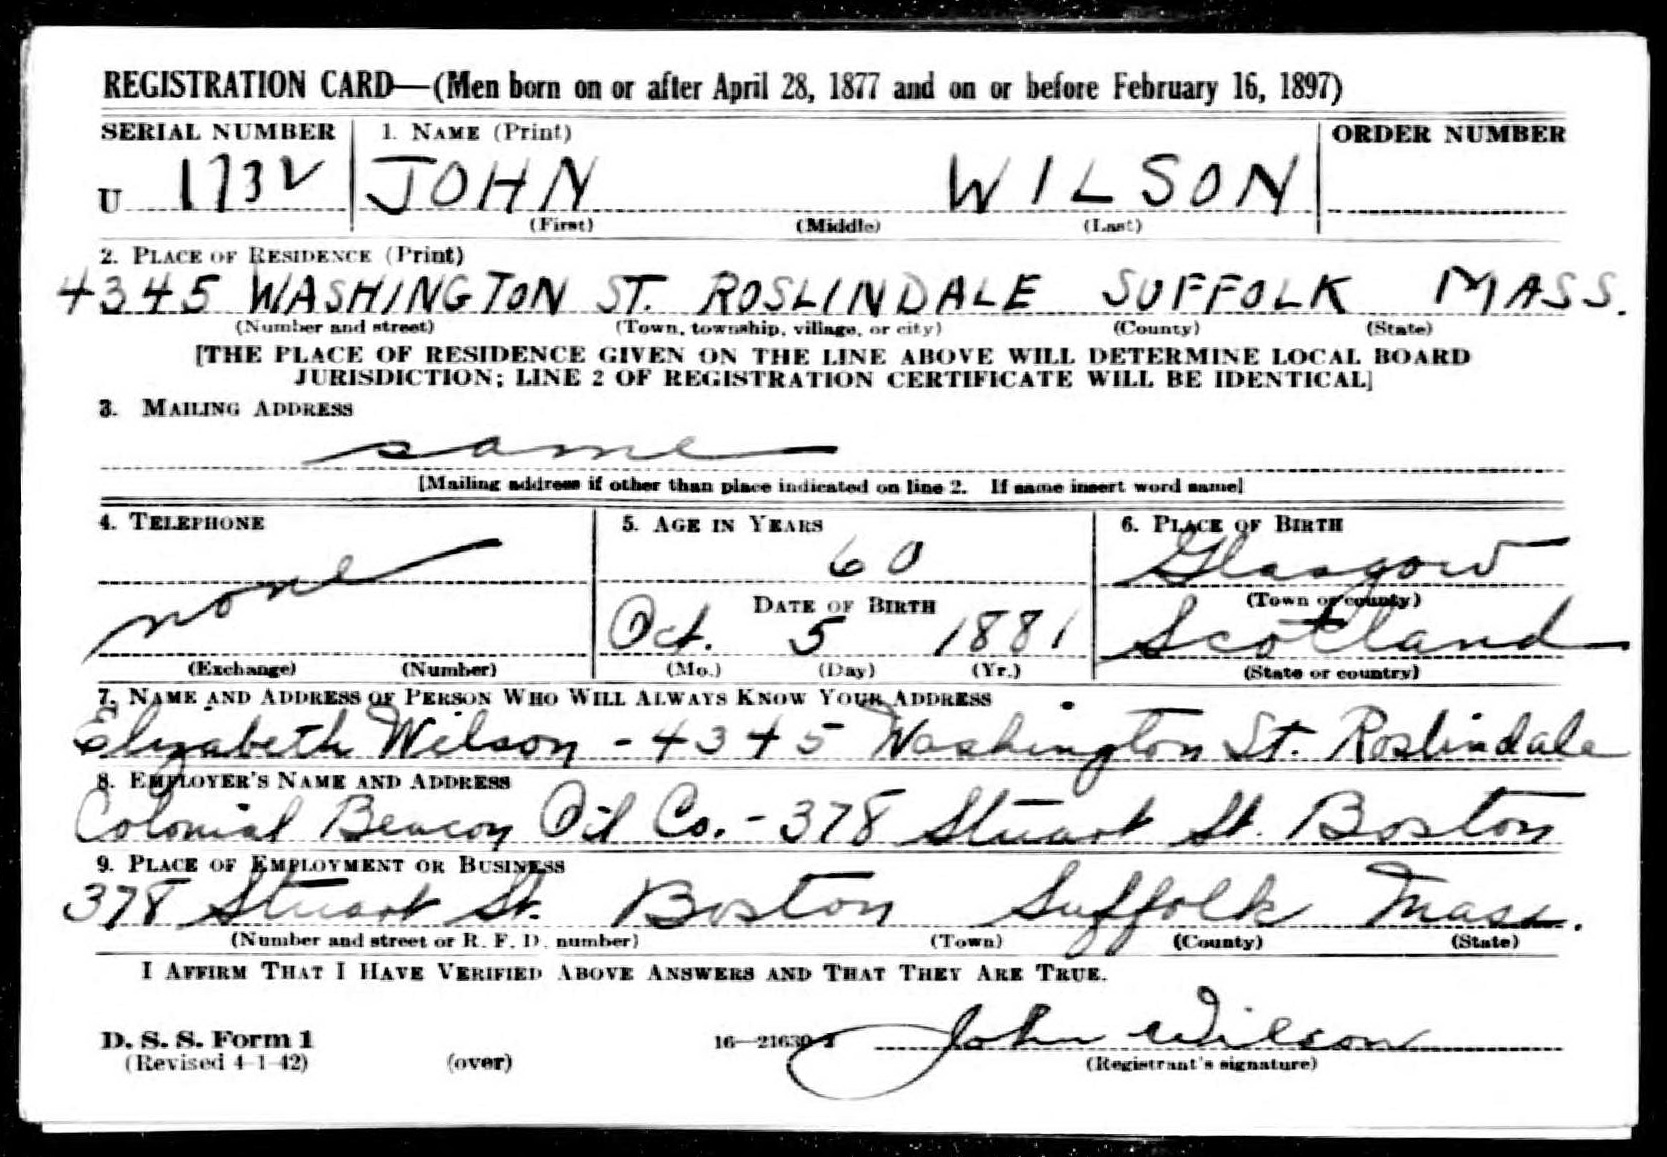 REGISTRATION CARD—(Men born on or after April 28, 1877 and on or before February 16, 1897)
SERIAL NUMBER 1. NAME (Print) ORDER NUMBER
U 1732 JOHN WILSON
(First) (Middle) (Last)
2. PLACE OF RESIDENCE (Print)
4345 WASHINGTON ST. ROSLINDALE SUFFOLK MASS.
(Number and street) (Town, township, village, or city) (County) (State)
[THE PLACE OF RESIDENCE GIVEN ON THE LINE ABOVE WILL DETERMINE LOCAL BOARD
JURISDICTION; LINE 2 OF REGISTRATION CERTIFICATE WILL BE IDENTICAL]
3. MAILING ADDRESS
same
[Mailing address if other than place indicated on line 2. If same insert word same]
4. TELEPHONE 5. AGE IN YEARS 6. PLACE OF BIRTH
none 60 Glasgow
DATE OF BIRTH (Town or county)
Oct. 5 1881 Scotland
(Exchange) (Number) (Mo.) (Day) (Yr.) (State or country)
7. NAME AND ADDRESS OF PERSON WHO WILL ALWAYS KNOW YOUR ADDRESS
Elizabeth Wilson - 4345 Washington St. Roslindale
8. EMPLOYER'S NAME AND ADDRESS
Colonial Beacon Oil Co. - 378 Stuart St. Boston
9. PLACE OF EMPLOYMENT OR BUSINESS
378 Stuart St. Boston Suffolk Mass.
(Number and street or R. F. D. number) (Town) (County) (State)
I AFFIRM THAT I HAVE VERIFIED ABOVE ANSWERS AND THAT THEY ARE TRUE.
D. S. S. Form 1 16—21630 John Wilson
(Revised 4-1-42) (over) (Registrant's signature)